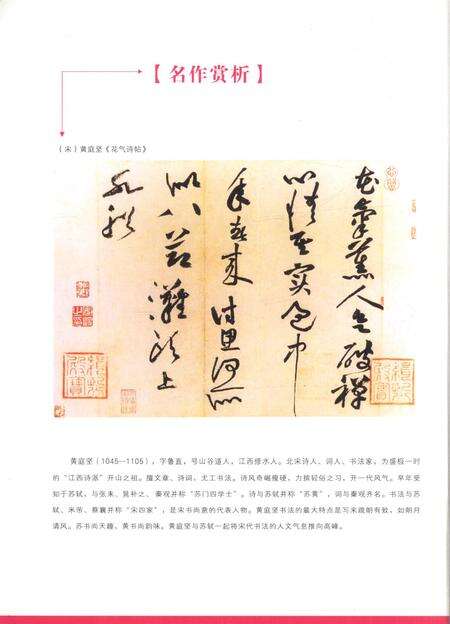 【名作赏析】
(宋)黄庭坚《花气诗帖》
花气薰人欲破禅
心情其实过中
年春来诗思何所
似八节滩头上
水船
黄庭坚(1045—1105),字鲁直,号山谷道人,江西修水人。北宋诗人、词人、书法家,为盛极一时
的“江西诗派”开山之祖。擅文章、诗词,尤工书法。诗风奇崛瘦硬,力摈轻俗之习,开一代风气。早年受
知于苏轼,与张耒、晁补之、秦观并称“苏门四学士”。诗与苏轼并称“苏黄”,词与秦观齐名。书法与苏
轼、米芾、蔡襄并称“宋四家”,是宋书尚意的代表人物。黄庭坚书法的最大特点是写来疏朗有致,如朗月
清风。苏书尚天趣,黄书尚韵味。黄庭坚与苏轼一起将宋代书法的人文气息推向高峰。